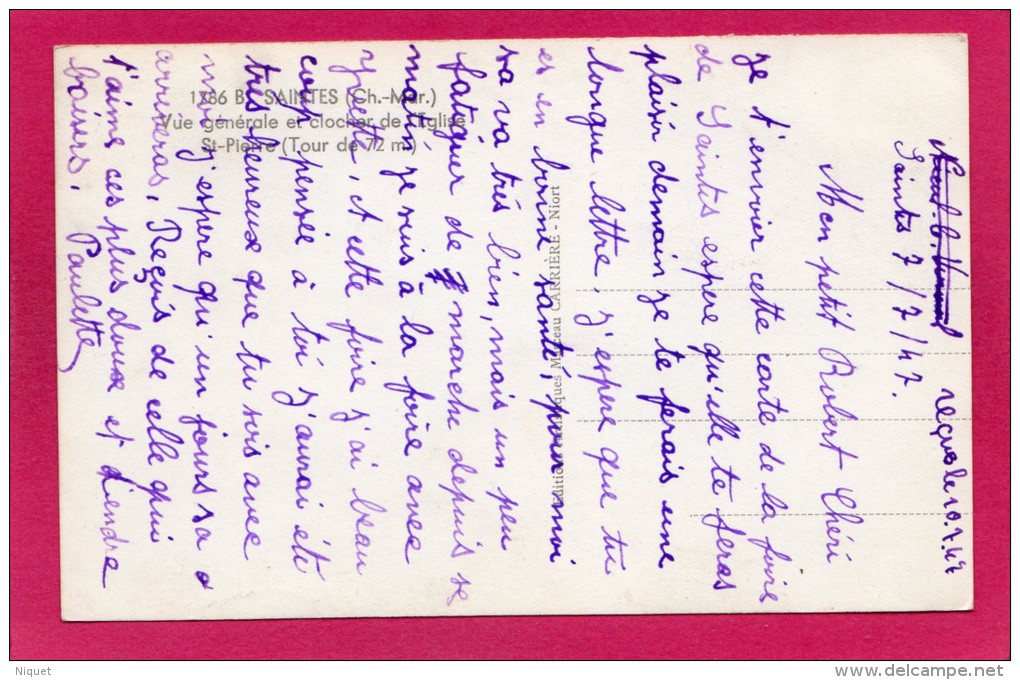 Saintes 7/7/47.
reçue le 10.7.47
Mon petit Robert Chéri
Je t'envoier cette carte de la foire
de Saintes espere qu'elle te feras
plaisir demain je te ferais une
longue lettre, j'espere que tu
es en bonne santé, pour moi
sa va très bien, mais un peu
fatiguer de marche depuis se
matin je suis à la foire avec
Yvette, et cette foire j'ai beau
coup pensée à toi j'aurai été
très heureux que tu sois avec
moi j'espere qu'un jours sa
arriveras, Reçois de celle qui
t'aime ces plus doux et tendre
baisers. Paulette
1786 B - SAINTES (Ch.-Mar.)
Vue générale et clocher de l'Eglise
St-Pierre (Tour de 72 m)
Editions Marceau CARRIÈRE - Niort
Niquet
www.delcampe.net